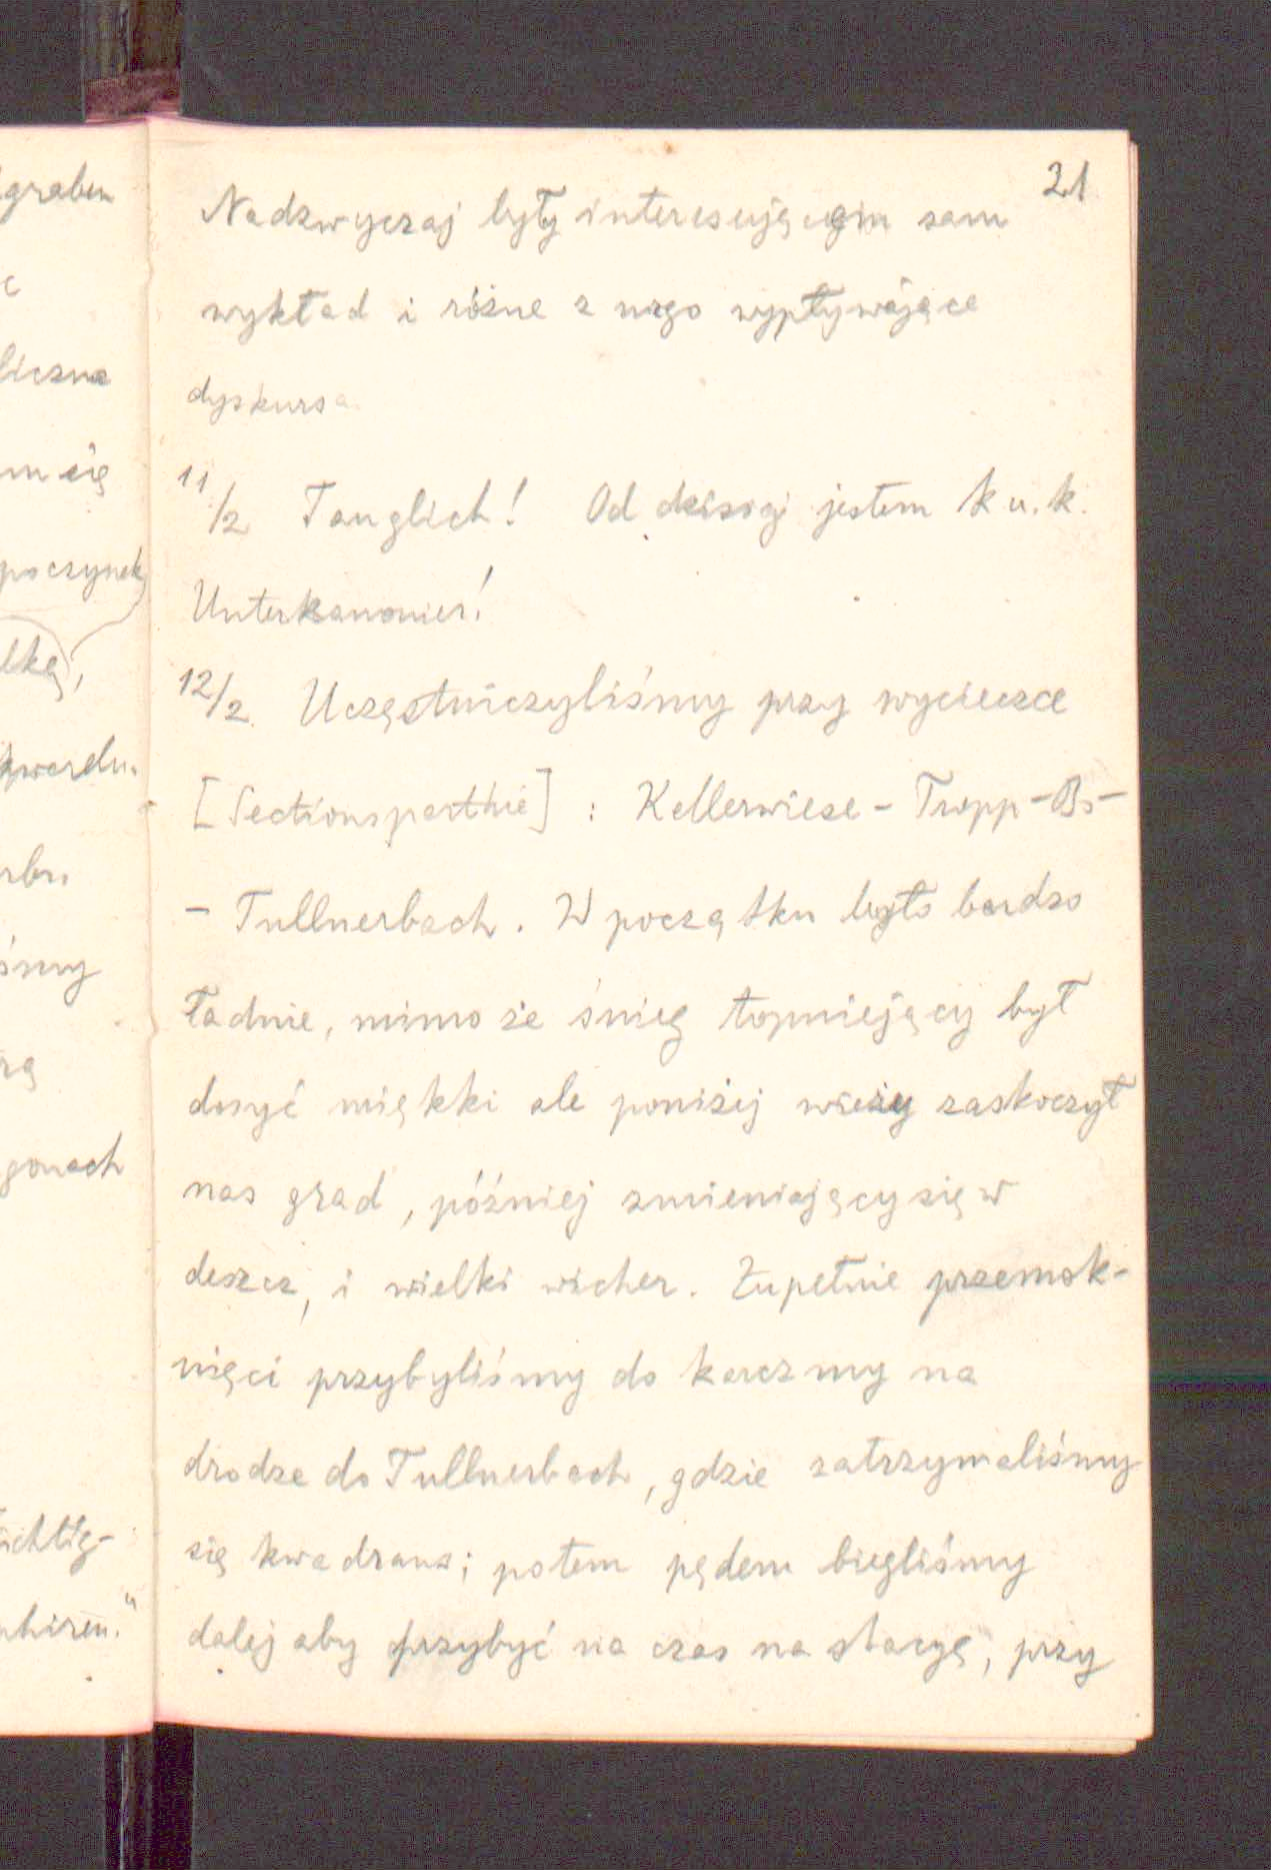 21
Nadzwyczaj były interesującym sam
wykład i różne z niego wypływające
dyskursa.
11/2 Tauglich! Od dzisiaj jestem k. u. k.
Unterkanonier!
12/2 Uczęstniczyliśmy przy wycieczce
[Sectionsparthie] : Kellerwiese – Tropp-B. –
– Tullnerbach. W początku było bardzo
ładnie, mimo że śnieg topniejący był
dosyć miękki ale poniżej wieży zaskoczył
nas grad, później zmieniający się w
deszcz, i wielki wicher. Zupełnie przemok-
nięci przybyliśmy do karczmy na
drodze do Tullnerbach, gdzie zatrzymaliśmy
się kwadrans; potem pędem biegliśmy
dalej aby przybyć na czas na stację, przy